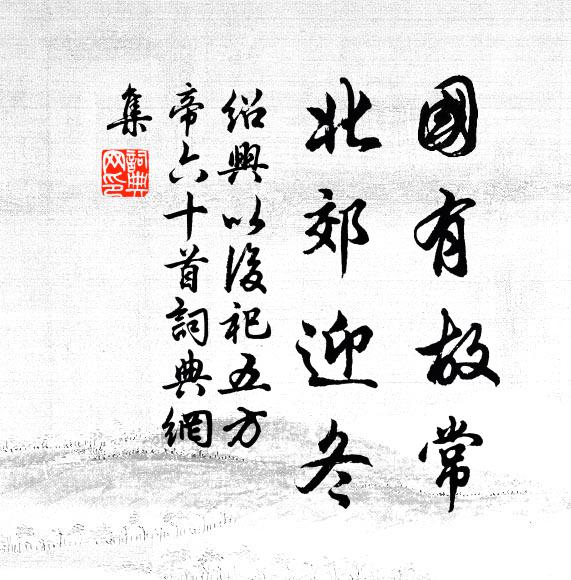 國有故常
北郊迎冬
紹興以後祀五方
帝六十首詞典網
集
詞典網印